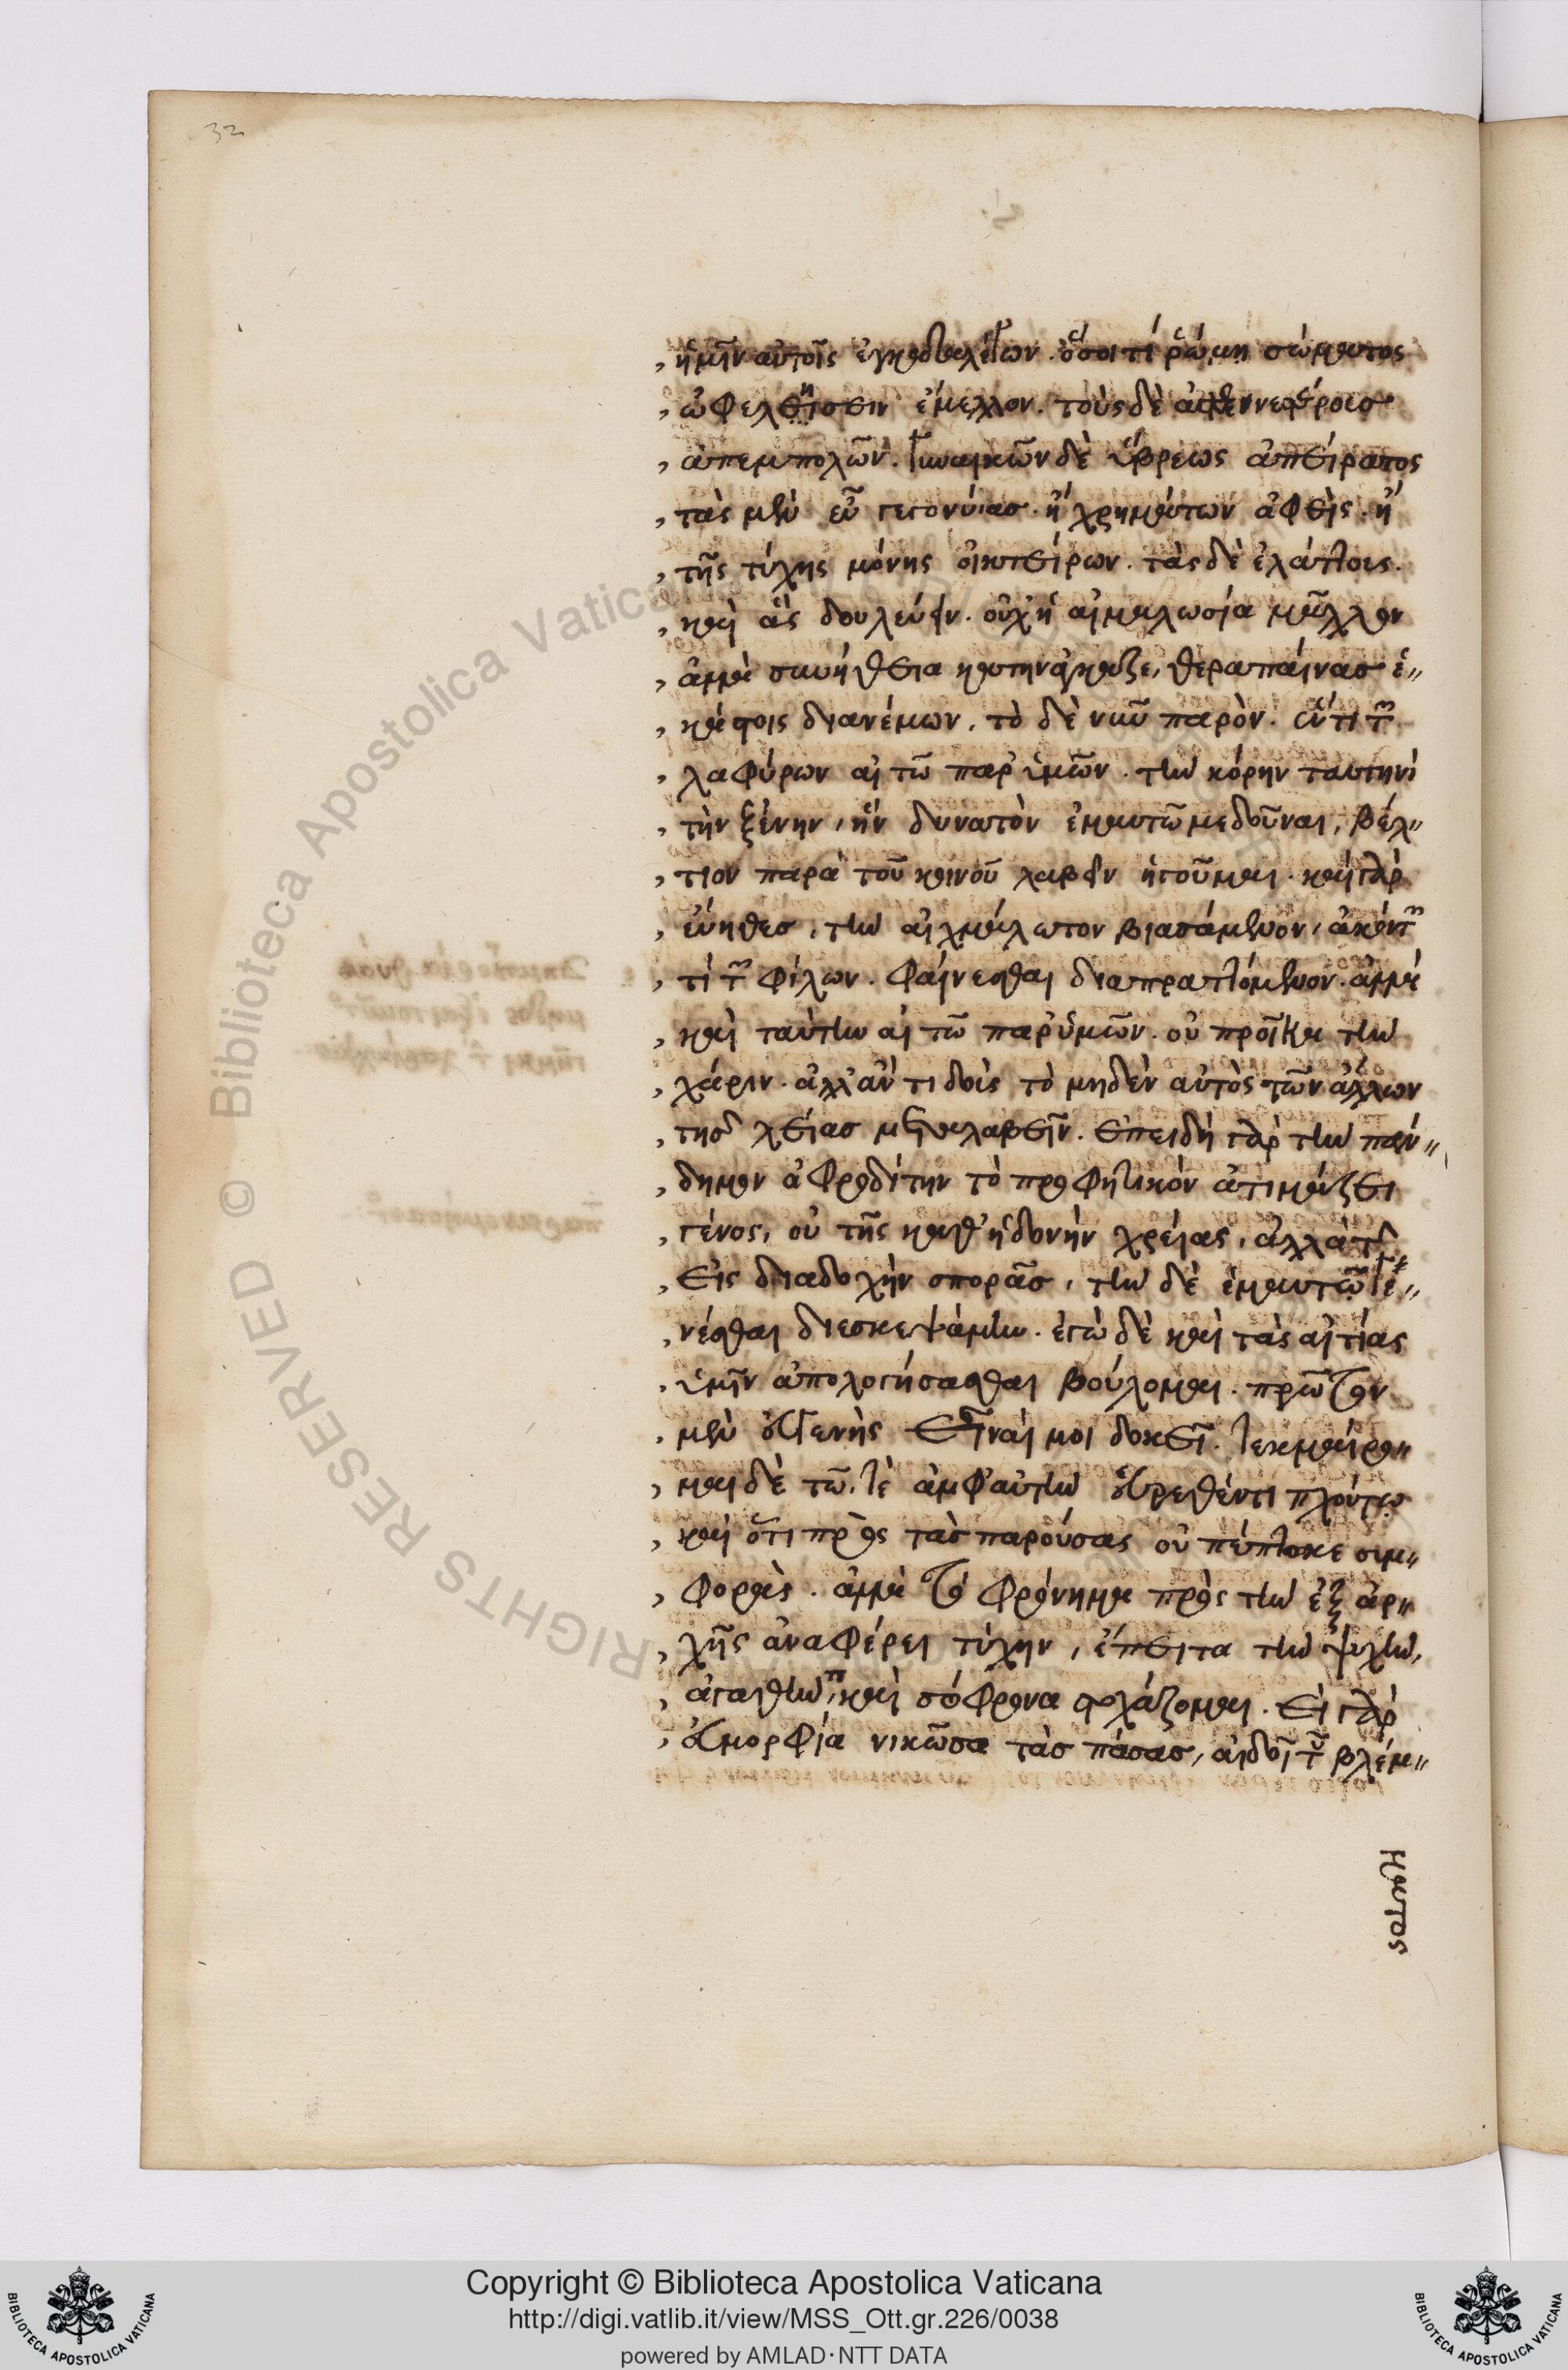 32
, ἡμῖν αὐτοῖς ἐγκαταλέγων. ὅσοι τί ῥώμη σώματος
, ὠφελήσειν ἔμελλον. τοὺς δὲ ἀσθενεστέροισ
, ἀπεμπολῶν. γυναικῶν δὲ ὕβρεως ἀπείρατος
, τὰς μὲν εὖ γεγονυίασ. ἢ χρημάτων ἀφεὶς. ἢ
, τῆς τύχης μόνης οἰκτείρων. τὰς δὲ ἐλάττους.
, καὶ ἃς δουλεύειν. οὐχ ἡ αἰχμαλωσία μᾶλλον
, ἀλλὰ συνήθεια κατηνάγκαζε, θεραπαίνασ ἑ〃
, κάστοις διανέμων. τὸ δὲ νῦν παρὸν. ἕν τι τῶν
, λαφύρων αἰτῶ παρ' ὑμῶν. τὴν κόρην ταυτηνὶ
, τὴν ξένην, ἣν δυνατὸν ἐμαυτῶ με δοῦναι, βέλ〃
, τιον παρὰ τοῦ κοινοῦ λαβεῖν ἡγοῦμαι. καὶ γὰρ
, εὔηθεσ, τὴν αἰχμάλωτον βιασάμενον, ἀκόντων
, τί τῶν φίλων. φαίνεσθαι διαπραττόμενον. ἀλλὰ
, καὶ ταύτην αἰτῶ παρ' ὑμῶν. οὐ προῖκα τὴν
, χάριν. ἀλλ' ἀντιδοὶς τὸ μηδὲν αὐτὸς τῶν ἄλλων
, τησ λείασ μεταλαβεῖν. ἐπειδὴ γὰρ τὴν πάν〃
, δημον ἀφροδίτην τὸ προφητικὸν ἀτιμάζει
, γένος, οὐ τῆς καθ' ἡδονὴν χρείας, ἀλλὰ τῆς
, εἰς διαδοχὴν σπορᾶσ, τὴν δὲ ἐμαυτῷ γε〃
, νέσθαι διεσκεψάμην. ἐγὼ δὲ καὶ τὰς αἰτίας
, ὑμῖν ἀπολογήσασθαι βούλομαι. πρῶτον
, μὲν εὐγενὴς εἶναί μοι δοκεῖ. τεκμαίρο〃
, μαι δὲ τῶ. τὲ ἀμφ' αὐτὴν εὑρεθέντι πλούτῳ
, καὶ ὅτι πρὸς τὰσ παρούσας οὐ πέπτωκε συμ〃
, φορὰς. ἀλλὰ τὸ φρόνημα πρὸς τὴν ἐξ ἀρ〃
, χῆς ἀναφέρει τύχην, ἔπειτα τὴν ψυχὴν,
, ἀγαθὴν, καὶ σόφρονα στοχάζομαι. εἰ γὰρ
, εὐμορφία νικῶσα τὰσ πάσασ, αἰδοῖ τοῦ βλέμ〃
ματος
Copyright © Biblioteca Apostolica Vaticana
http://digi.vatlib.it/view/MSS_Ott.gr.226/0038
powered by AMLAD·NTT DATA